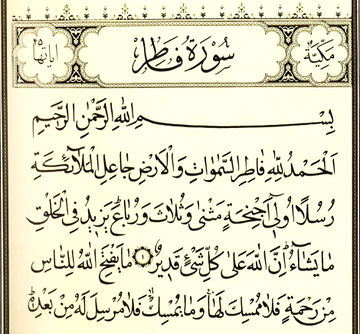 مكية سورة فاطر اياتها ٤٥
بِسْمِ اللهِ الرَّحْمٰنِ الرَّحِيمِ
اَلْحَمْدُ لِلّٰهِ فَاطِرِ السَّمٰوَاتِ وَالْاَرْضِ جَاعِلِ الْمَلٰٓئِكَةِ
رُسُلًا اُو۬لٓى اَجْنِحَةٍ مَثْنٰى وَثُلٰثَ وَرُبَاعَ يَزِيدُ فِى الْخَلْقِ
مَا يَشَٓاءُ اِنَّ اللهَ عَلٰى كُلِّ شَىْءٍ قَدِيرٌ مَا يَفْتَحِ اللهُ لِلنَّاسِ
مِنْ رَحْمَةٍ فَلَا مُمْسِكَ لَهَا وَمَا يُمْسِكْ فَلَا مُرْسِلَ لَهُ مِنْ بَعْدِهِ